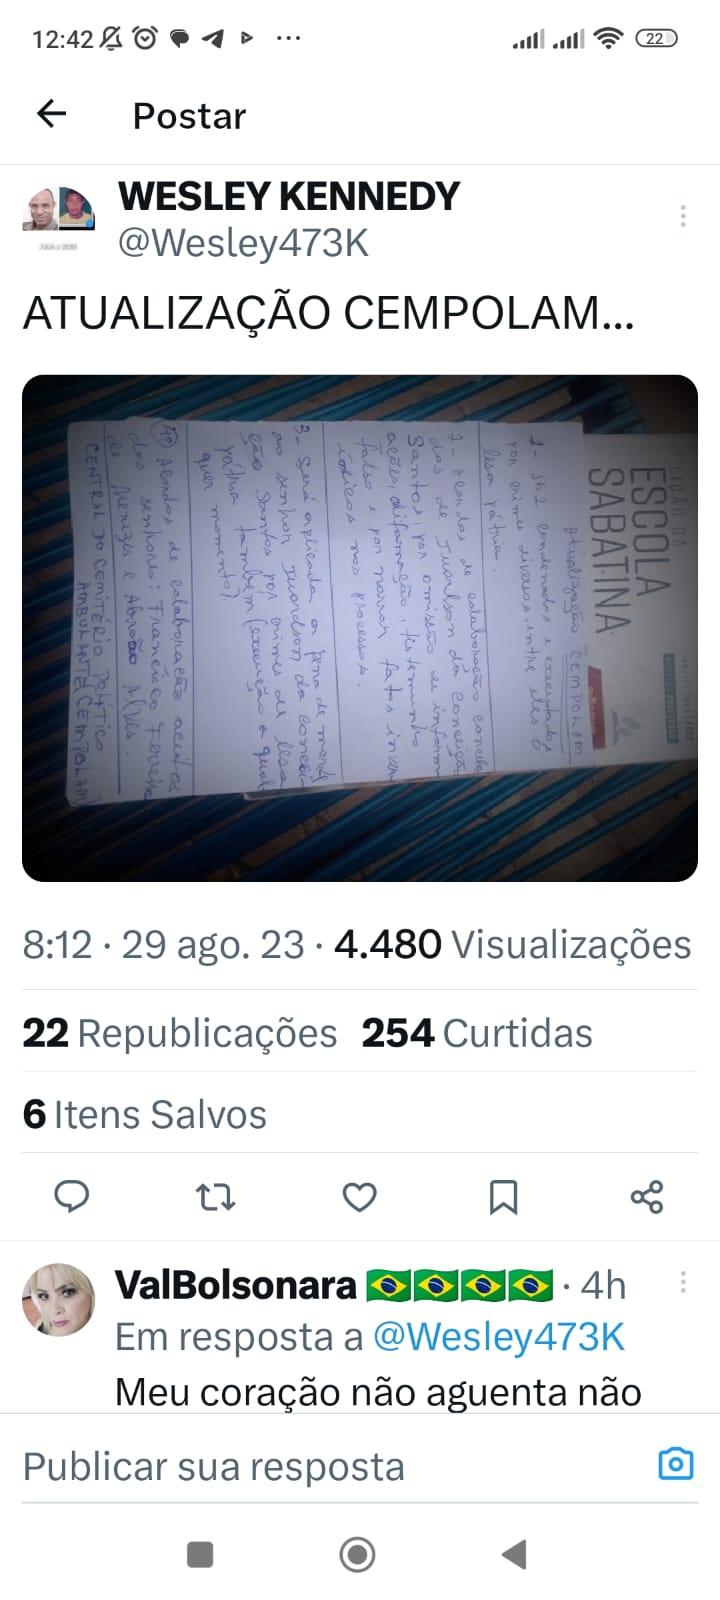 12:42
22
Postar
WESLEY KENNEDY
@Wesley473K
ATUALIZAÇÃO CEMPOLAM...
LIÇÃO DA
ESCOLA
SABATINA
Atualização CEMPOLAM
1- 562 condenados e executados
por crimes diversos, entre eles o
lesa pátria.
2- Acordos de colaboração
dos de Juarlson da Conceição
Santos, por omissão de inform
ações, difamação, testemunho
falso e por narrar fatos inver
ídicos nos processos.
3- Será aplicada a pena de morte
ao senhor Juardson da Concei
ção Santos por crimes de lesa
pátria também (execução a qual
quer momento).
Acordos de colaboração aceitos
dos senhores: Francisco Ferreira
de Menezes e Abraão Alves.
CENTRAL DO CEMITÉRIO POLÍTICO
AMBULANTE (CEMPOLAM)
8:12 · 29 ago. 23 · 4.480 Visualizações
22 Republicações 254 Curtidas
6 Itens Salvos
ValBolsonara 🇧🇷🇧🇷🇧🇷🇧🇷 · 4h
Em resposta a @Wesley473K
Meu coração não aguenta não
Publicar sua resposta